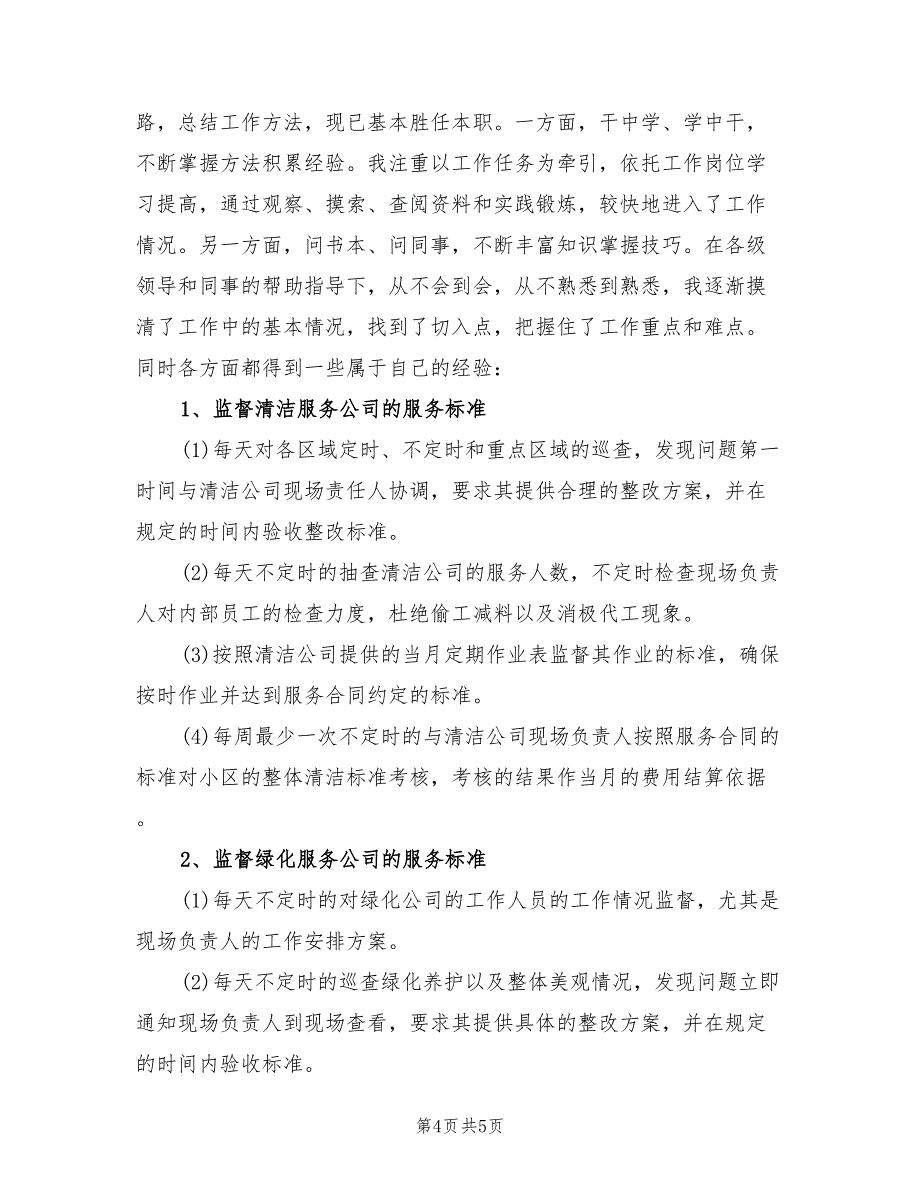 路，总结工作方法，现已基本胜任本职。一方面，干中学、学中干，
不断掌握方法积累经验。我注重以工作任务为牵引，依托工作岗位学
习提高，通过观察、摸索、查阅资料和实践锻炼，较快地进入了工作
情况。另一方面，问书本、问同事，不断丰富知识掌握技巧。在各级
领导和同事的帮助指导下，从不会到会，从不熟悉到熟悉，我逐渐摸
清了工作中的基本情况，找到了切入点，把握住了工作重点和难点。
同时各方面都得到一些属于自己的经验：
1、监督清洁服务公司的服务标准
(1)每天对各区域定时、不定时和重点区域的巡查，发现问题第一
时间与清洁公司现场责任人协调，要求其提供合理的整改方案，并在
规定的时间内验收整改标准。
(2)每天不定时的抽查清洁公司的服务人数，不定时检查现场负责
人对内部员工的检查力度，杜绝偷工减料以及消极代工现象。
(3)按照清洁公司提供的当月定期作业表监督其作业的标准，确保
按时作业并达到服务合同约定的标准。
(4)每周最少一次不定时的与清洁公司现场负责人按照服务合同的
标准对小区的整体清洁标准考核，考核的结果作当月的费用结算依据
。
2、监督绿化服务公司的服务标准
(1)每天不定时的对绿化公司的工作人员的工作情况监督，尤其是
现场负责人的工作安排方案。
(2)每天不定时的巡查绿化养护以及整体美观情况，发现问题立即
通知现场负责人到现场查看，要求其提供具体的整改方案，并在规定
的时间内验收标准。
第4页共5页